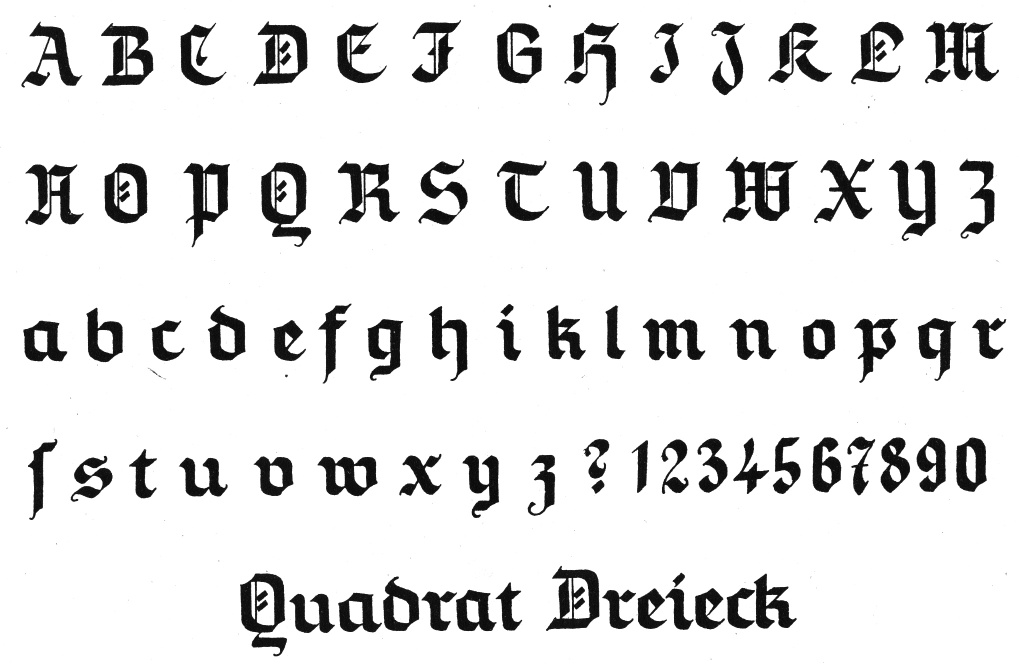 A B C D E F G H I J K L M
N O P Q R S T U V W X Y Z
a b c d e f g h i k l m n o p q r
ſ s t u v w x y z ? 1 2 3 4 5 6 7 8 9 0
Quadrat Dreieck